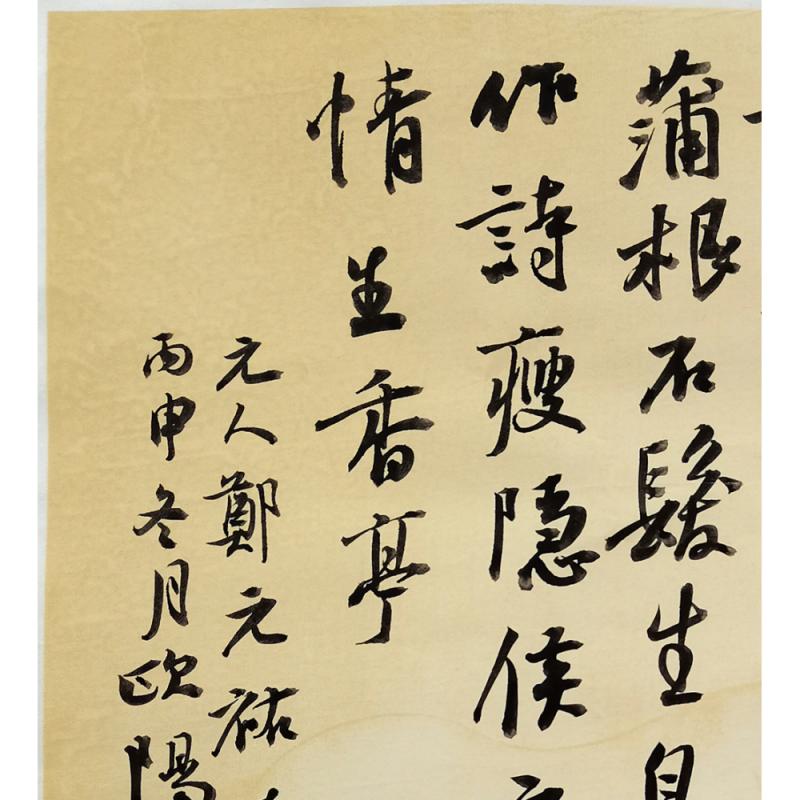 蒲根石髮生
作詩瘦隱侯
情生香亭
元人鄭元祐
丙申冬月歐陽